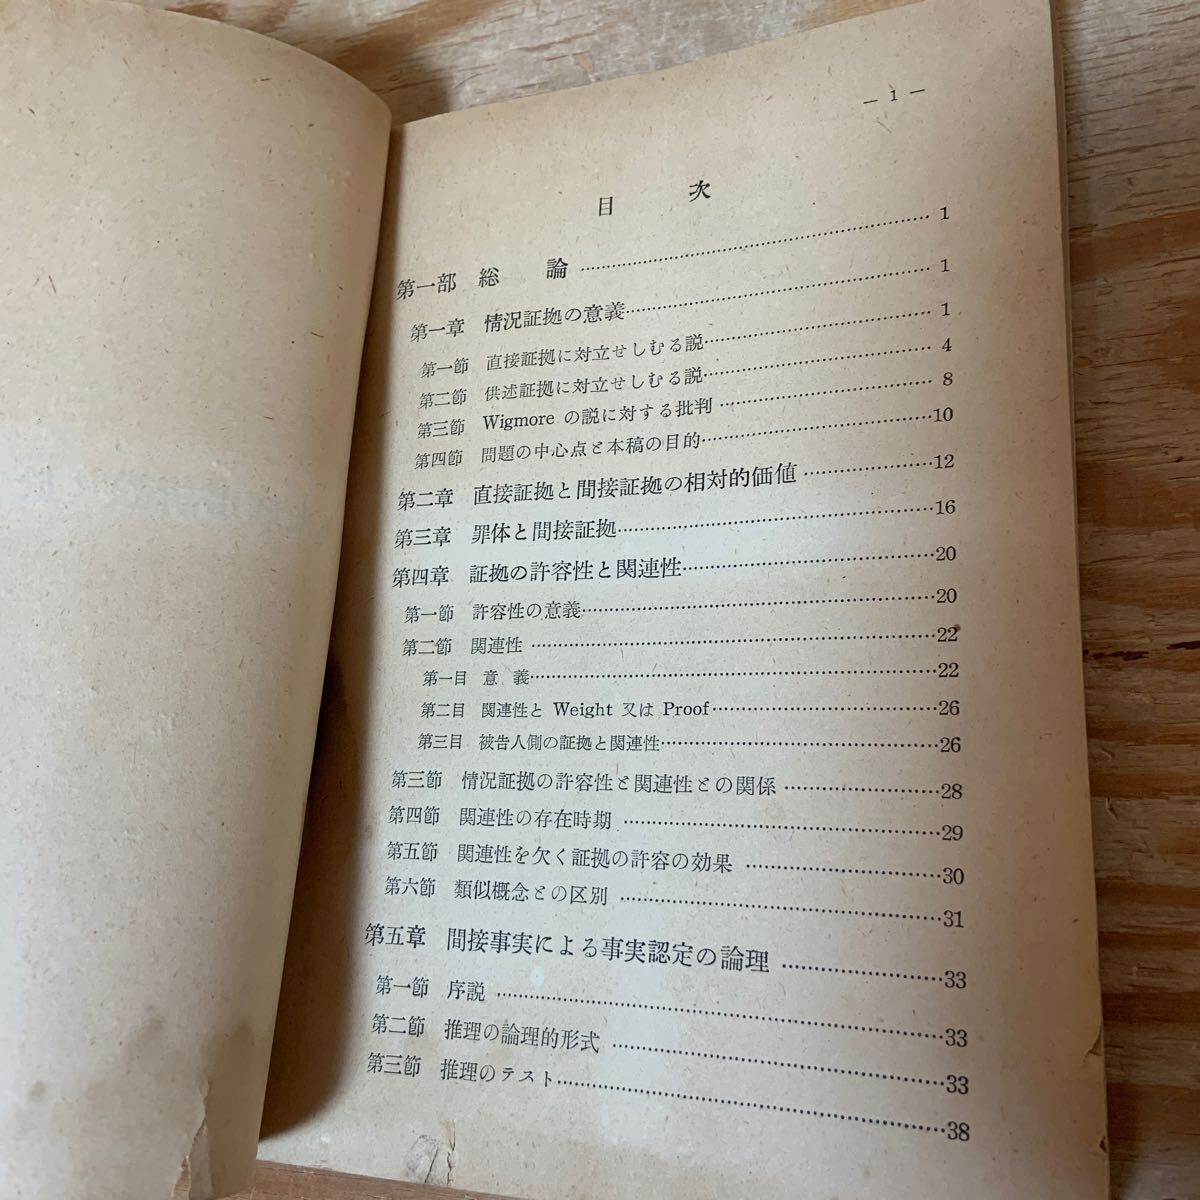 — 1 —
目　次
第一部　総　論 …… 1
第一章　情況証拠の意義 …… 1
第一節　直接証拠に対立せしむる説 …… 1
第二節　供述証拠に対立せしむる説 …… 4
第三節　Wigmore の説に対する批判 …… 8
第四節　問題の中心点と本稿の目的 …… 10
第二章　直接証拠と間接証拠の相対的価値 …… 12
第三章　罪体と間接証拠 …… 16
第四章　証拠の許容性と関連性 …… 20
第一節　許容性の意義 …… 20
第二節　関連性 …… 22
第一目　意　義 …… 22
第二目　関連性と Weight 又は Proof …… 26
第三目　被告人側の証拠と関連性 …… 26
第三節　情況証拠の許容性と関連性との関係 …… 28
第四節　関連性の存在時期 …… 29
第五節　関連性を欠く証拠の許容の効果 …… 30
第六節　類似概念との区別 …… 31
第五章　間接事実による事実認定の論理 …… 33
第一節　序説 …… 33
第二節　推理の論理的形式 …… 33
第三節　推理のテスト …… 38